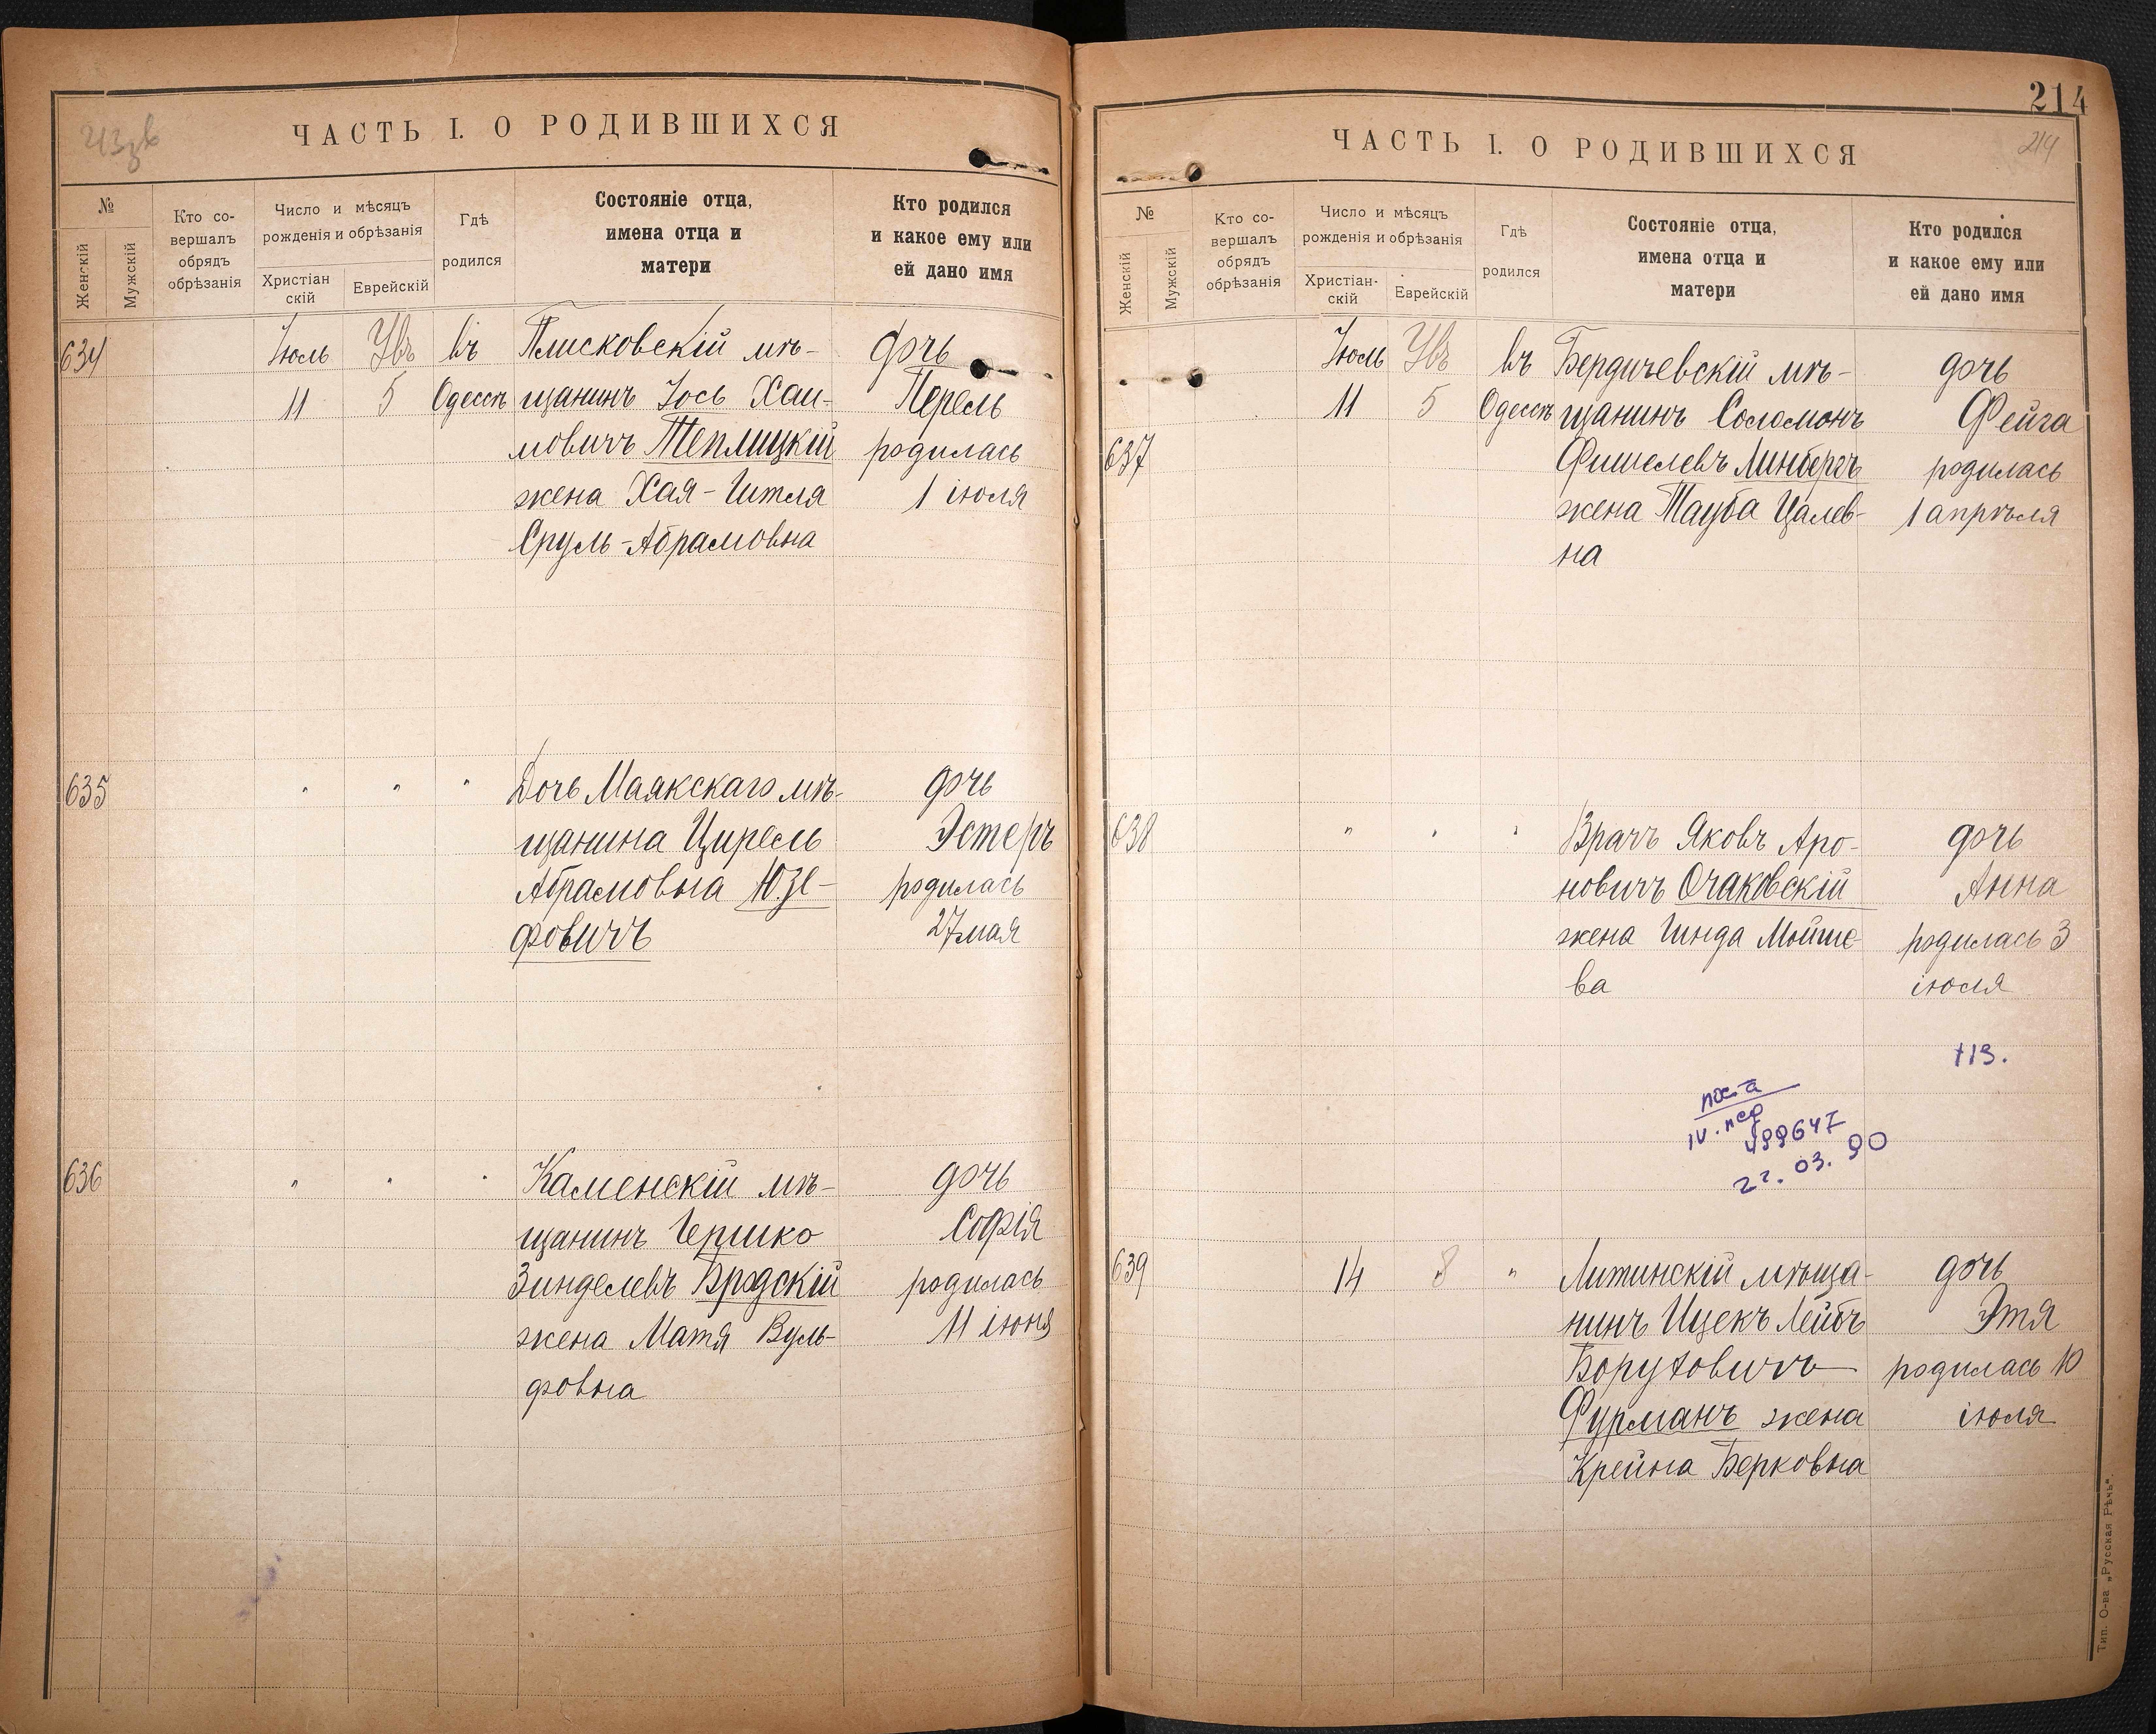 ЧАСТЬ I. О РОДИВШИХСЯ
№
Женскій
Мужскій
Кто со-
вершалъ
обрядъ
обрѣзанія
Число и мѣсяцъ
рожденія и обрѣзанія
Христіан
скій
Еврейскій
Гдѣ
родился
Состояніе отца,
имена отца и
матери
Кто родился
и какое ему или
ей дано имя
634
Іюль
11
5
въ
Одессѣ
Плисковскій мѣ-
щанинъ Іось Хаи-
мовичъ Теплицкій
жена Хая-Гитля
Сруль-Абрамовна
дочь
Перель
родилась
1 іюля
635
" " "
Дочь Маякскаго мѣ-
щанина Цирель
Абрамовна Юзе-
фовичъ
дочь
Эстеръ
родилась
27 мая
636
" " "
Каменскій мѣ-
щанинъ Гершко
Зинделевъ Бродскій
жена Матя Вуль-
фовна
дочь
Софія
родилась
11 іюня
214
214
ЧАСТЬ I. О РОДИВШИХСЯ
№
Женскій
Мужскій
Кто со-
вершалъ
обрядъ
обрѣзанія
Число и мѣсяцъ
рожденія и обрѣзанія
Христіан-
скій
Еврейскій
Гдѣ
родился
Состояніе отца,
имена отца и
матери
Кто родился
и какое ему или
ей дано имя
637
Іюль
11
5
въ
Одессѣ
Бердичевскій мѣ-
щанинъ Соломонъ
Фишелевъ Линбергъ
жена Тауба Цалев-
на
дочь
Фейга
родилась
1 апрѣля
638
" " "
Врачъ Яковъ Аро-
новичъ Очаковскій
жена Гинда Мойше-
ва
дочь
Анна
родилась 3
іюля
22.03.90
639
14
8
"
Литинскій мѣща-
нинъ Ицекъ Лейбъ
Боруховичъ
Фурманъ жена
Крейна Берковна
дочь
Этя
родилась 10
іюля
Тип. О-ва „Русская Рѣчь".